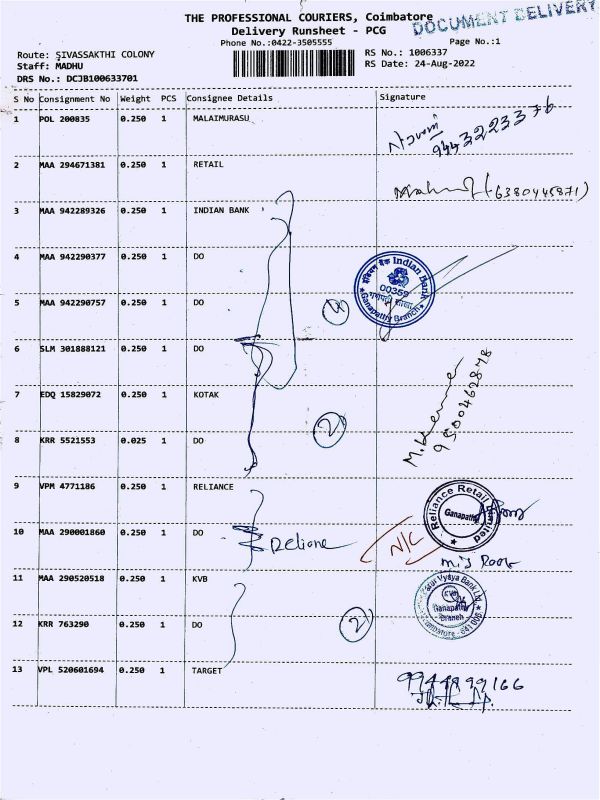 THE PROFESSIONAL COURIERS, Coimbatore
DOCUMENT DELIVERY
Delivery Runsheet - PCG
Phone No.:0422-3505555
Page No.:1
Route: SIVASSAKTHI COLONY
RS No.: 1006337
Staff: MADHU
RS Date: 24-Aug-2022
DRS No.: DCJB100633701
S No Consignment No Weight PCS Consignee Details Signature
1 POL 200835 0.250 1 MALAIMURASU
9443223376
2 MAA 294671381 0.250 1 RETAIL
(6380445871)
3 MAA 942289326 0.250 1 INDIAN BANK
4 MAA 942290377 0.250 1 DO
इंडियन बैंक Indian Bank
00359
गणपती शाखा
Ganapathy Branch
5 MAA 942290757 0.250 1 DO
4
6 SLM 301888121 0.250 1 DO
7 EDQ 15829072 0.250 1 KOTAK
9500462878
2
8 KRR 5521553 0.025 1 DO
9 VPM 4771186 0.250 1 RELIANCE
Reliance Retail Limited
Ganapathy
10 MAA 290001860 0.250 1 DO
N/C
11 MAA 290520518 0.250 1 KVB
Karur Vysya Bank Ltd.
KVB
Ganapathy
Branch
Coimbatore - 641 006
12 KRR 763290 0.250 1 DO
2
13 VPL 520601694 0.250 1 TARGET
9944899166